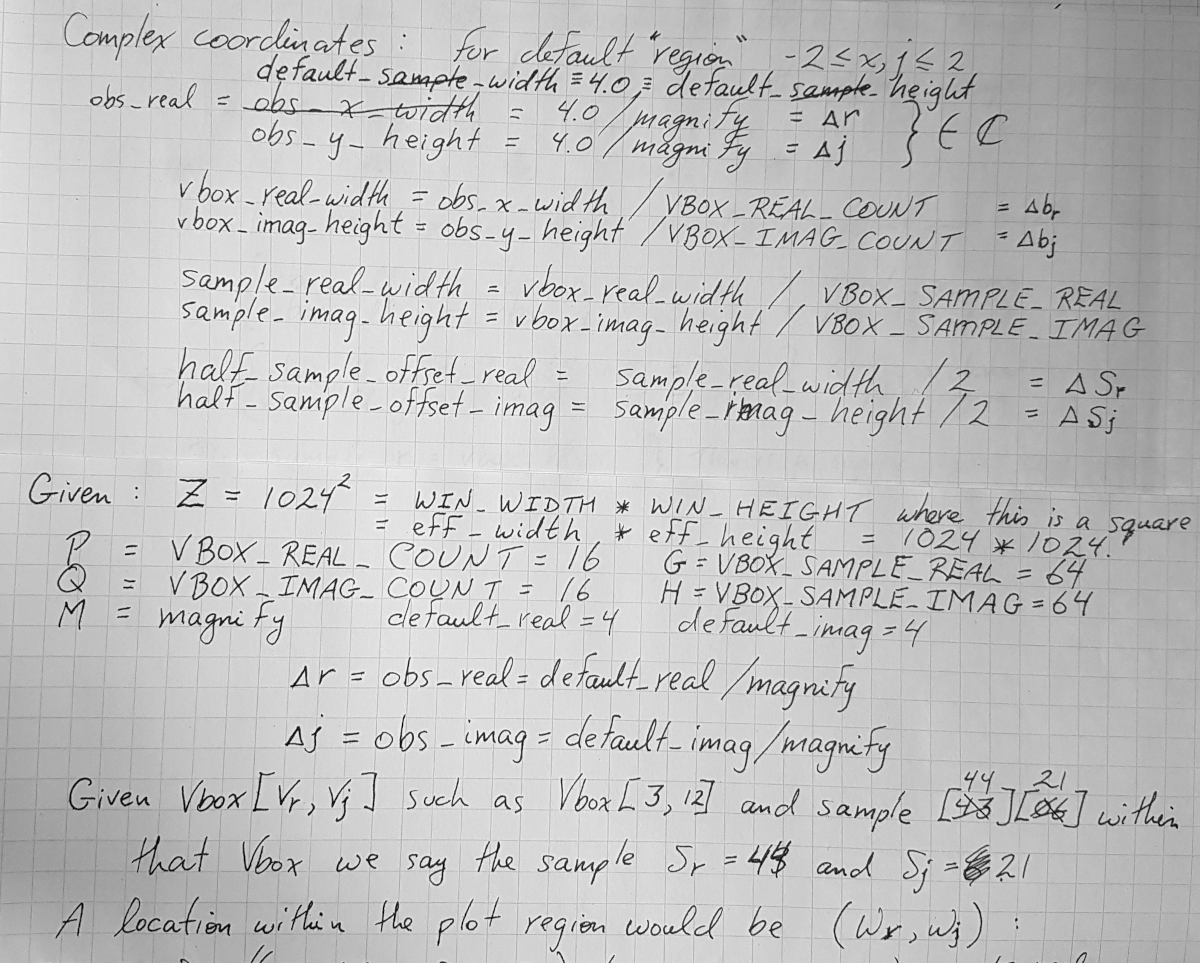 Complex coordinates : for default "region" -2 ≤ x, j ≤ 2
default_sample_width ≡ 4.0 ≡ default_sample_height
obs_real = obs_x_width = 4.0 / magnify = Δr
obs_y_height = 4.0 / magnify = Δj } ∈ ℂ
vbox_real_width = obs_x_width / VBOX_REAL_COUNT = Δbr
vbox_imag_height = obs_y_height / VBOX_IMAG_COUNT = Δbj
sample_real_width = vbox_real_width / VBOX_SAMPLE_REAL
sample_imag_height = vbox_imag_height / VBOX_SAMPLE_IMAG
half_sample_offset_real = sample_real_width / 2 = ΔSr
half_sample_offset_imag = sample_imag_height / 2 = ΔSj
Given : Z = 1024² = WIN_WIDTH * WIN_HEIGHT where this is a square
= eff_width * eff_height = 1024 * 1024.
P = VBOX_REAL_COUNT = 16 G = VBOX_SAMPLE_REAL = 64
Q = VBOX_IMAG_COUNT = 16 H = VBOX_SAMPLE_IMAG = 64
M = magnify default_real = 4 default_imag = 4
Δr = obs_real = default_real / magnify
Δj = obs_imag = default_imag / magnify
44 21
Given Vbox[Vr, Vj] such as Vbox[3, 12] and sample [43][06] within
that Vbox we say the sample Sr = 44 and Sj = 21
A location within the plot region would be (Wr, Wj) :